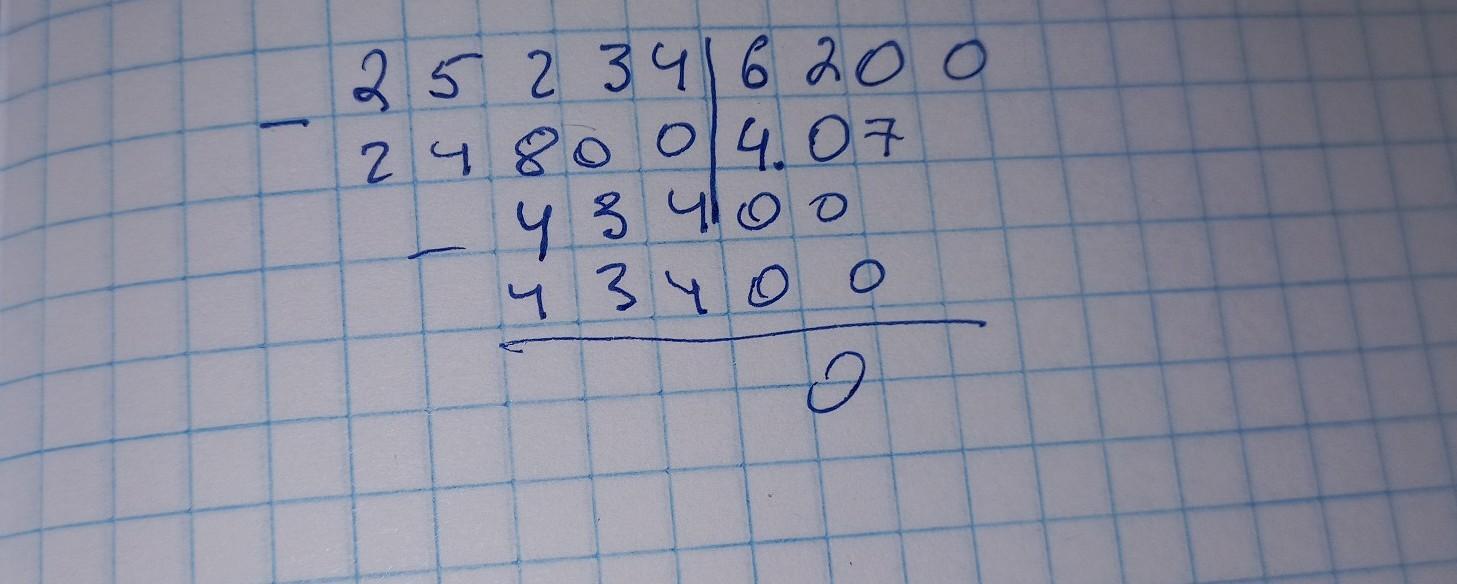 - 2 5 2 3 4 | 6 2 0 0
2 4 8 0 0 | 4.07
- 4 3 4 0 0
4 3 4 0 0
0